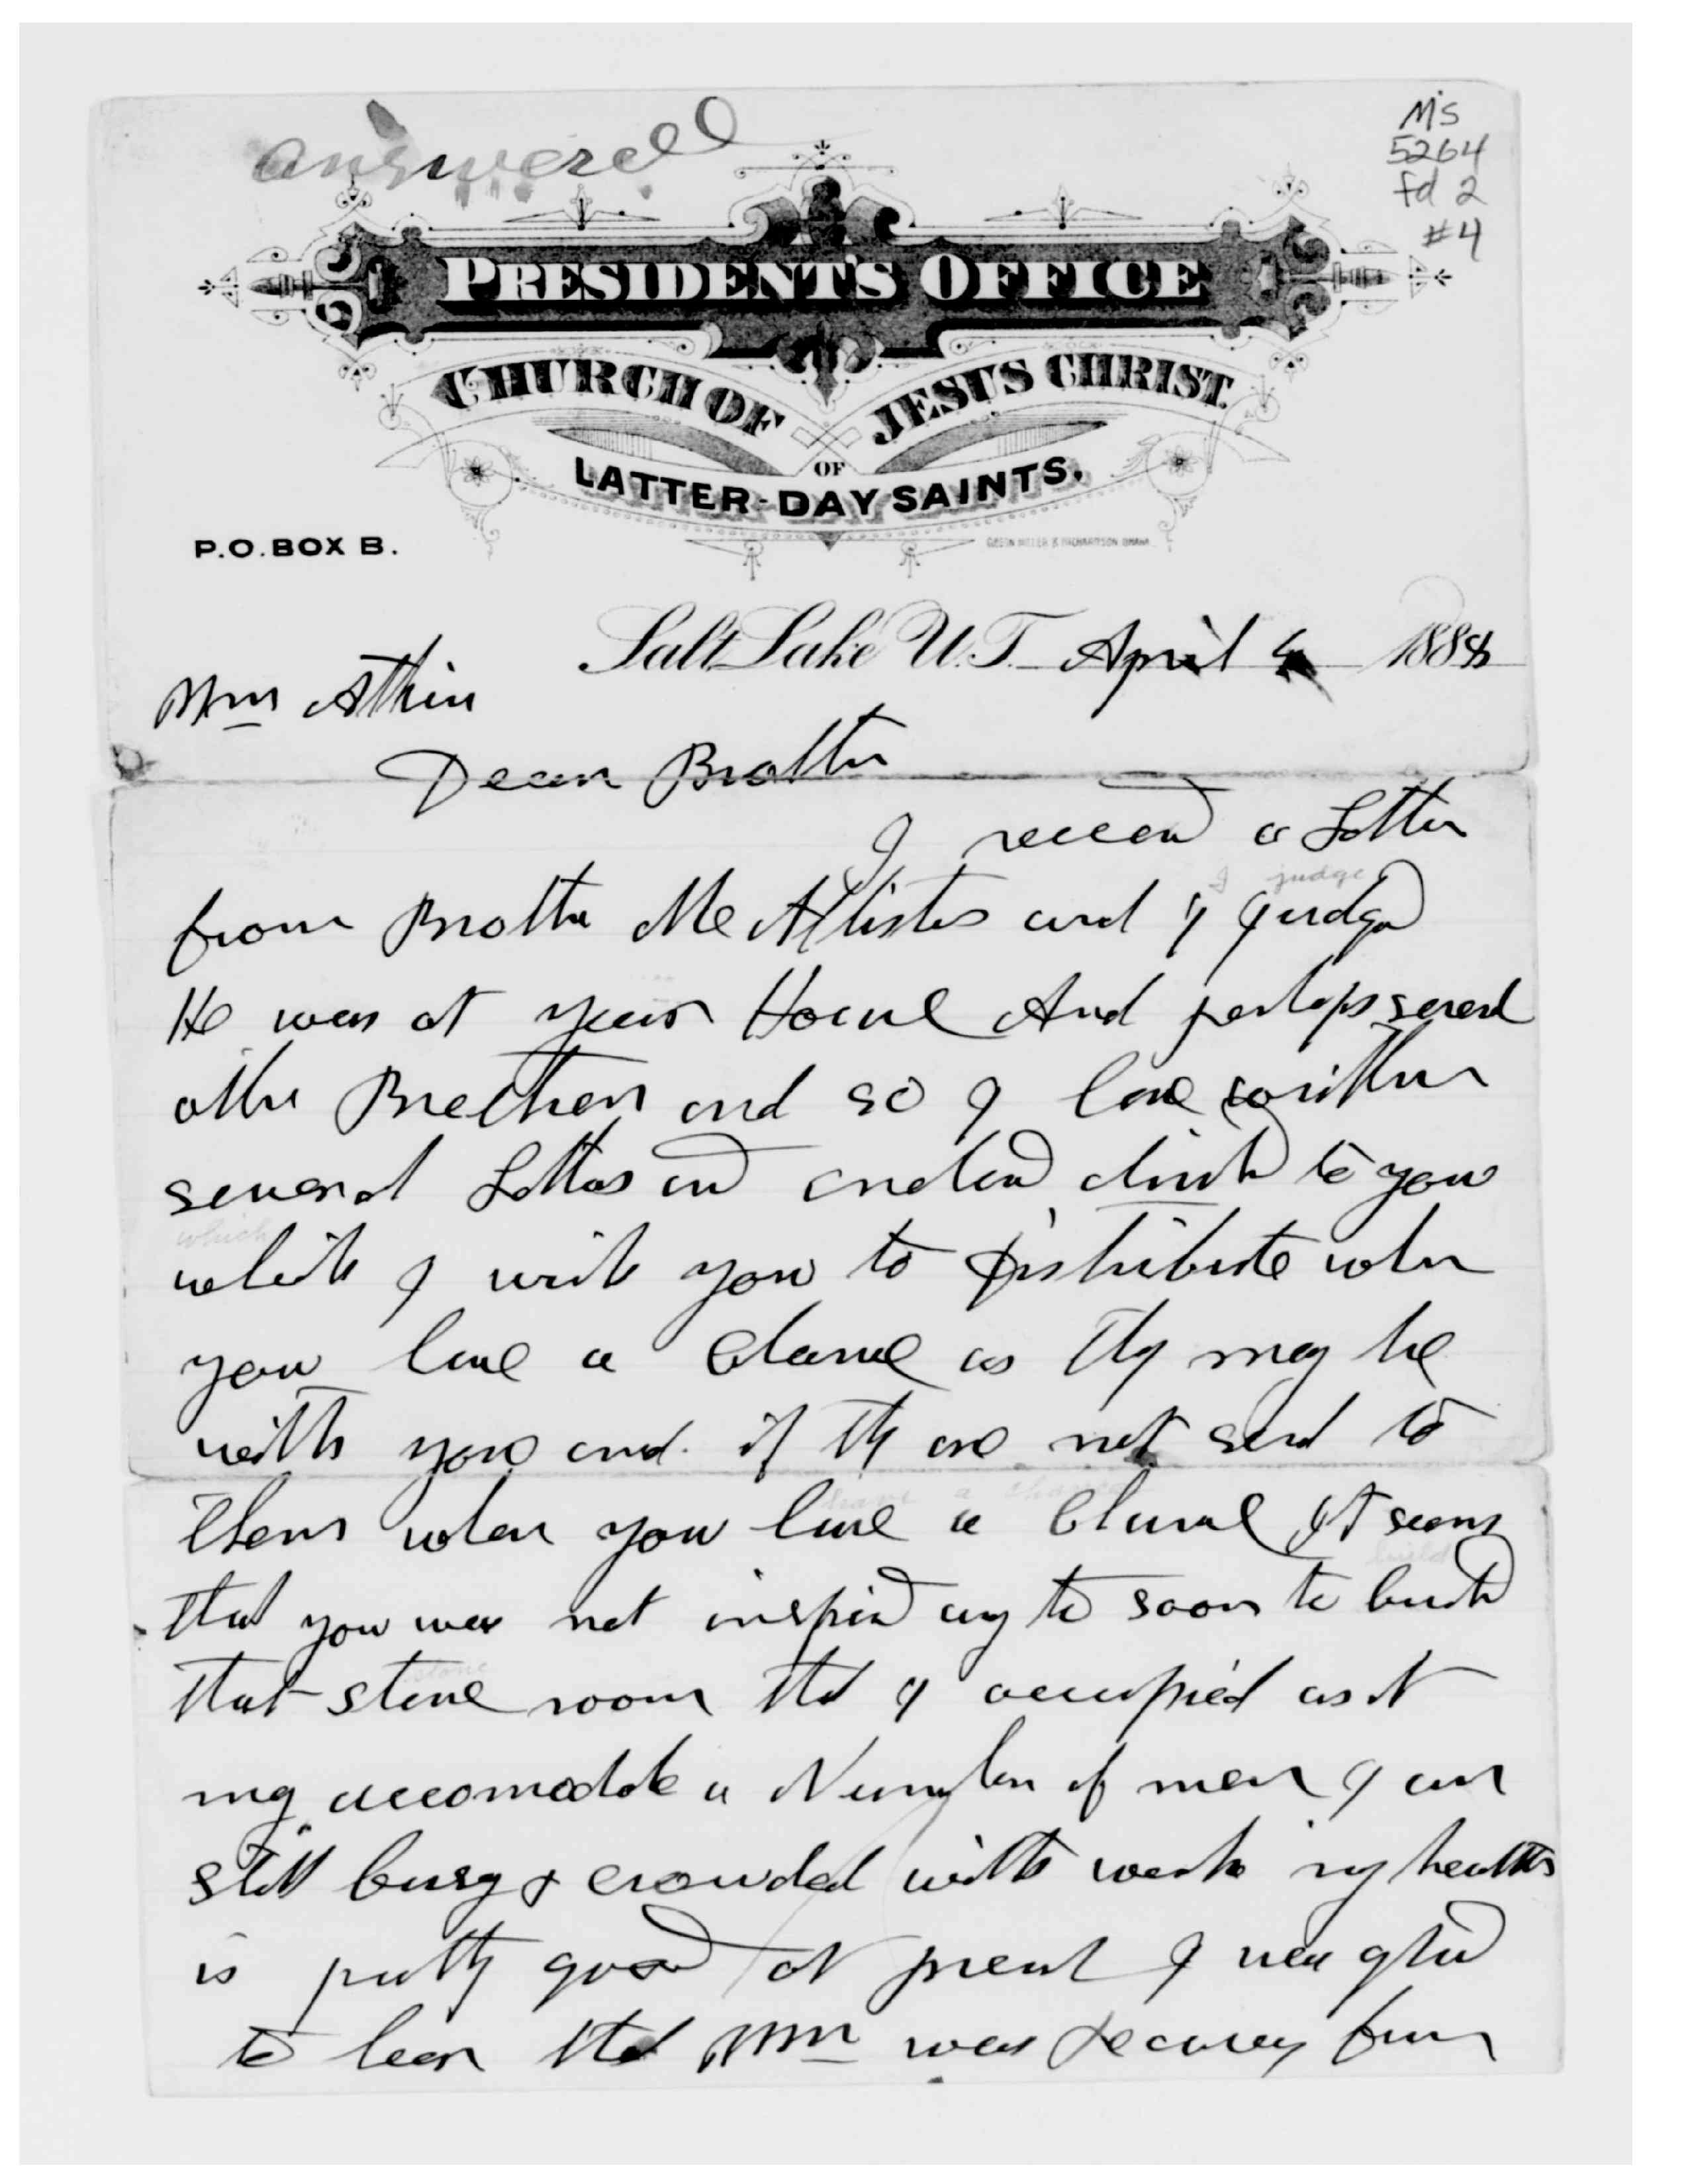 answered
MS
5264
fd 2
#4
PRESIDENT'S OFFICE
CHURCH OF JESUS CHRIST
OF
LATTER-DAY SAINTS.
P.O. BOX B.
Salt Lake U.T. April 4 1888
Wm Atkin
Dear Brother
I receivd a Letter
I judge
from Brother McAllister and I Judge
He was at your House And perhaps several
other Brethren and so I have written
several Letters and to you
which
which I wish you to distribute when
you have a Chance as they may be
with you and if they are not send to
have a chance
them when you have a Chance It seems
build
that you was not inspird any to soon to build
stone
that stone room that I occupied as it
may accomodate a Number of men I am
still busy & crowded with work my health
is pretty good at present I was glad
to hear that Wm was recovery from